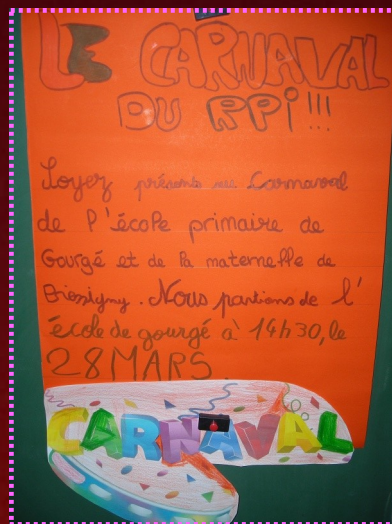 LE CARNAVAL
DU RPi!!!
Soyez présents au Carnaval
de l'école primaire de
Gourgé et de la maternelle de
Pressigny. Nous partions de l'
école de gourgé à 14h30, le
28 MARS
CARNAVAL